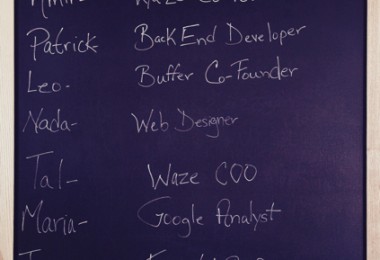 Patrick- BackEnd Developer
Leo- Buffer Co-Founder
Nada- Web Designer
Tal- Waze COO
Maria- Google Analyst